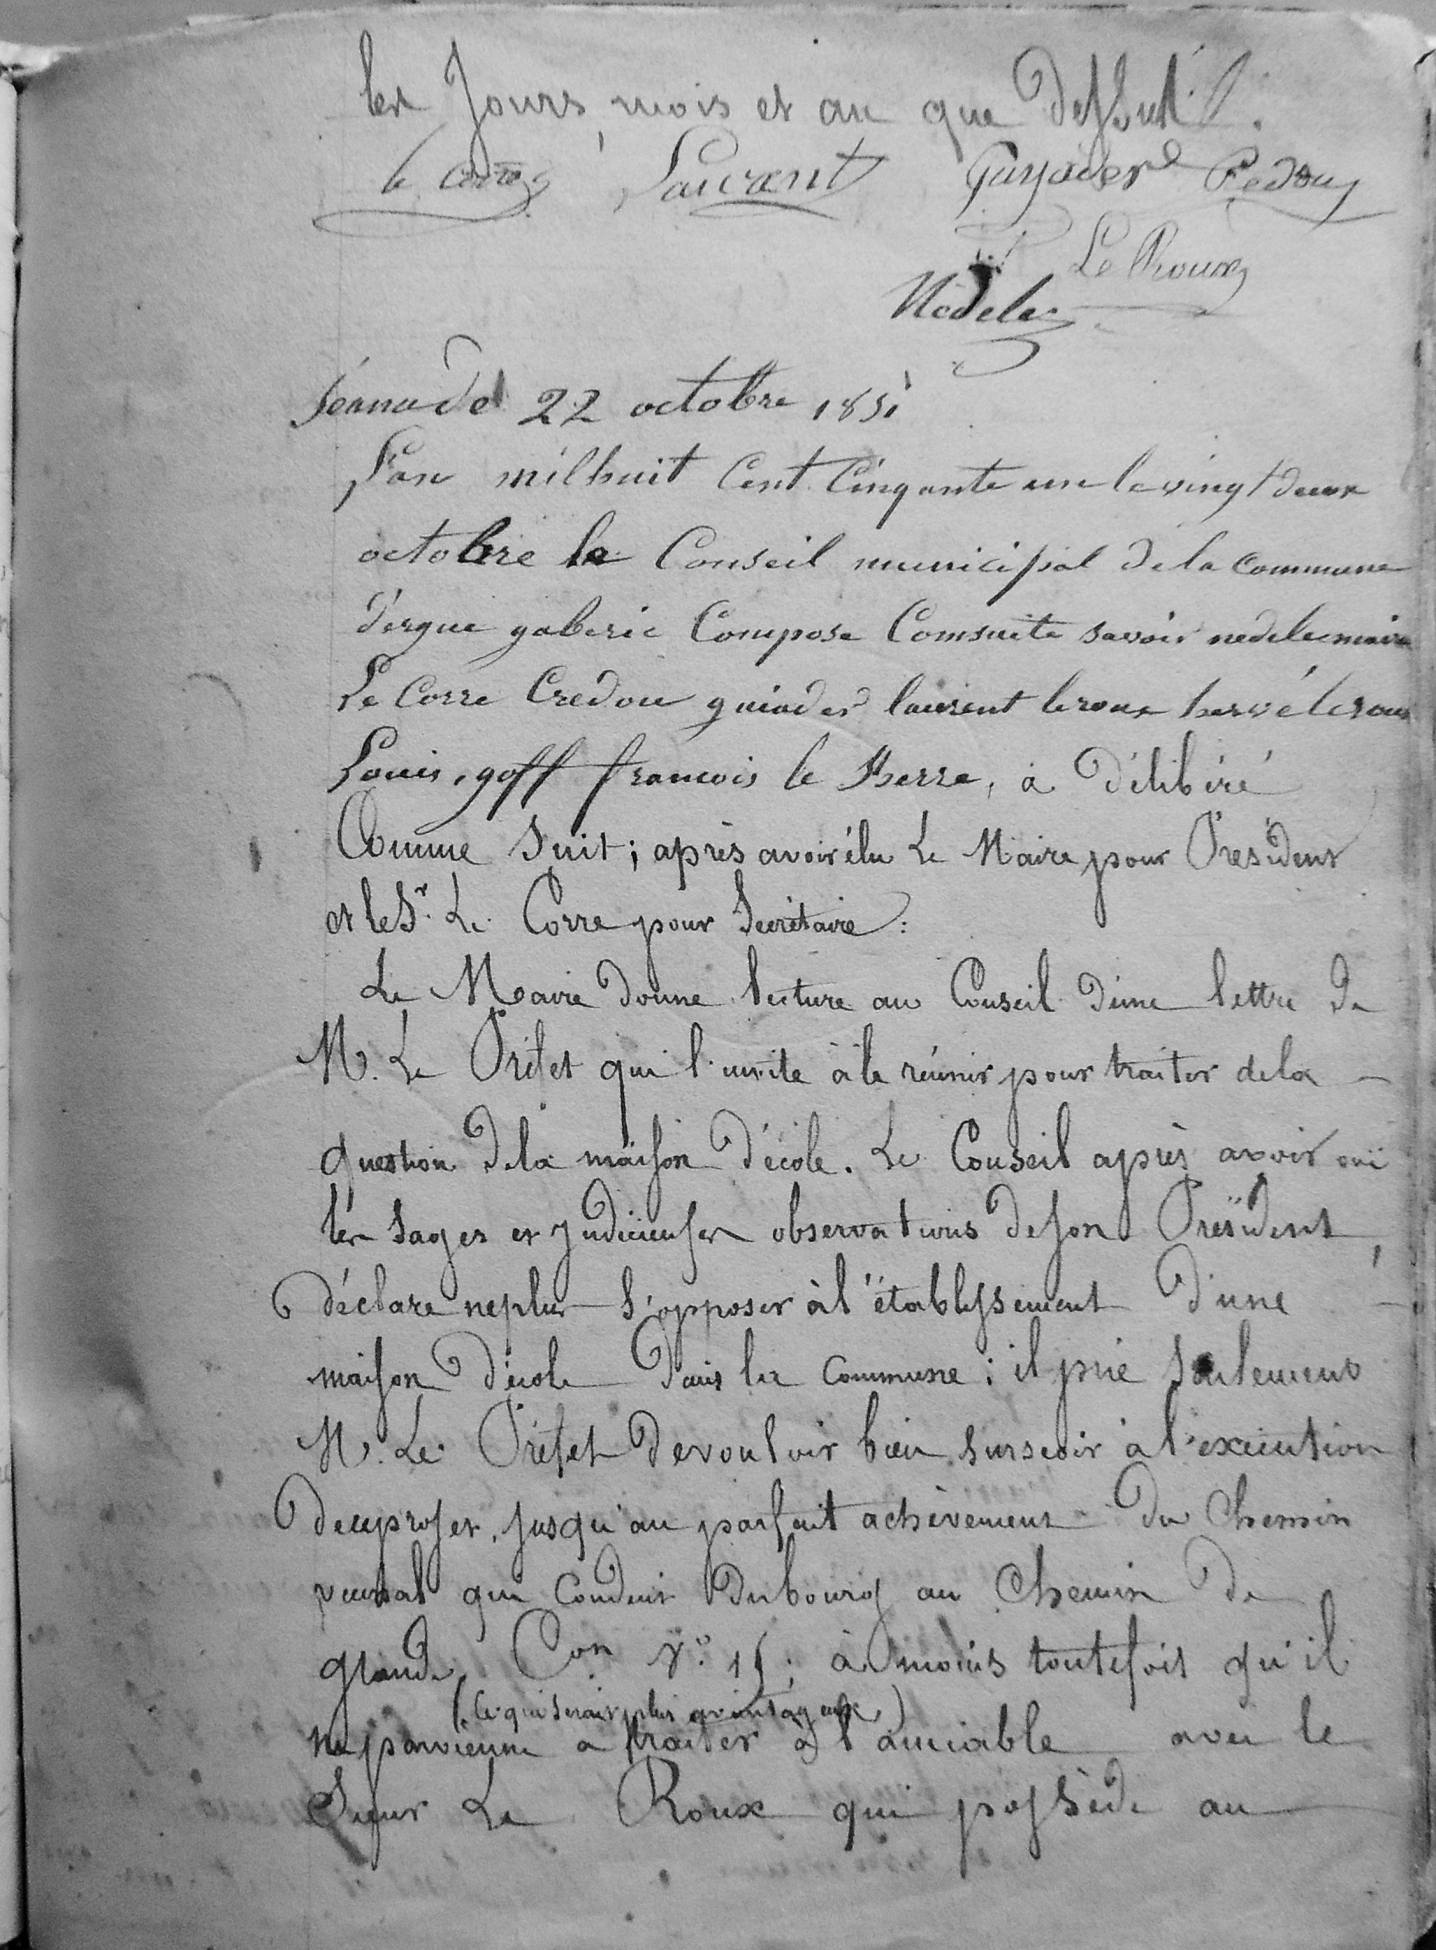 les Jours, mois et an que dessus.
Le Corre Laurent Guyader Credou
Le Roux
Nédelec
Séance du 22 octobre 1851
L'an mil huit Cent Cinqante un le vingt deux
octobre le Conseil municipal de la Commune
d'ergue gaberic Compose Comsuite savoir nedelec maire
Le Corre Credou guiader laurent leroux hervé leroux
Louis, goff francois le Berre, a délibéré
Comme Suit; après avoir élu Le Maire pour Président
et le Sr. Le Corre pour Secrétaire:
Le Maire donne lecture au Conseil d'une lettre de
M. Le Préfet qui l'invite à le réunir pour traiter de la
question de la maison d'école. Le Conseil après avoir ouï
les sages et judicieuses observations de son Président,
déclare ne plus s'opposer à l'établissement d'une
maison d'école dans la commune; il prie seulement
M. Le Préfet de vouloir bien surseoir à l'exécution
de ce projet, jusqu'au parfait achèvement du Chemin
vicinal qui conduit du bourg au chemin de
grande Con No. 15; à moins toutefois qu'il
(ce qui serait plus avantageux)
ne parvienne à traiter à l'amiable avec le
Sieur Le Roux qui possède au